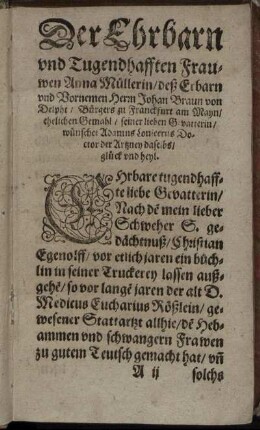 Der Ehrbarn
vnd Tugendhafften Frau-
wen Anna Müllerin/ deß Erbarn
vnd Vornemen Herrn Johan Braun von
Bürgers zu Franckfurt am Mayn/
ehelichen Gemahl/ seiner lieben Gevatterin/
wünschet Adamus Lonicerus Do-
ctor der Artzney daselbs/
glück vnd heyl.
EHrbare tugendhaff-
te liebe Gevatterin/
Nach dē mein lieber
Schweher S. ge-
dächtnuß/ Christian
Egenolff/ vor etlich jaren ein büch-
lin in seiner Truckerey lassen auß-
gehē/ so vor lange jaren der alt D.
Medicus Eucharius Rößlein/ ge-
wesener Stattartzt allhie/ dē Heb-
ammen vnd schwangern Frawen
zu gutem Teutsch gemacht hat/ vñ
A ij solchs